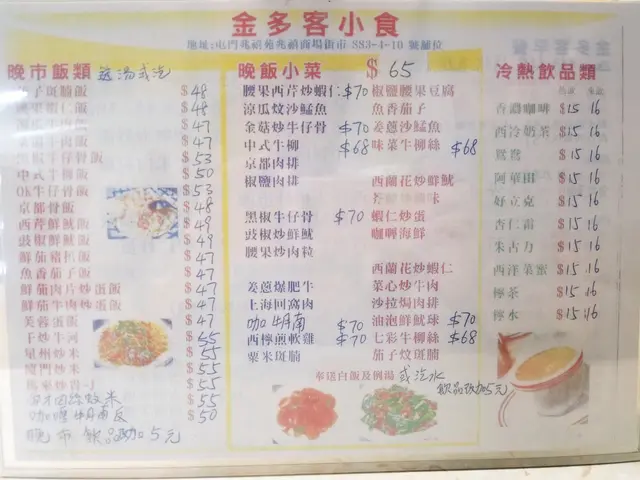 金多客小食
地址:屯門兆禧苑兆禧商場街市 S83-4-10 號舖位
晚市飯類 送湯或汽
斑腩飯 $48
蝦仁飯 $48
$47
$47
牛仔骨飯 $53
中式牛柳飯 $50
OK牛仔骨飯 $53
京都骨飯 $48
西芹鮮魷飯 $49
豉椒鮮魷飯 $49
鮮茄豬扒飯 $47
魚香茄子飯 $47
鮮茄肉片炒蛋飯 $47
鮮茄牛肉炒蛋飯 $47
芙蓉蛋飯 $47
干炒牛河 55
星州炒米 $55
廈門炒米 $55
$55
$55
$50
晚市飲品加5元
晚飯小菜 $65
腰果西芹炒蝦仁 $70
涼瓜炆沙鯭魚
金菇炒牛仔骨 $70
中式牛柳 $68
京都肉排
椒鹽肉排
黑椒牛仔骨 $70
豉椒炒鮮魷
腰果炒肉粒
姜蔥爆肥牛
上海回窩肉
咖喱牛腩 $70
西檸煎軟雞 $70
粟米斑腩
椒鹽腰果豆腐
魚香茄子
姜蔥沙鯭魚
味菜牛柳絲 $68
西蘭花炒鮮魷
蝦仁炒蛋
咖喱海鮮
西蘭花炒蝦仁
菜心炒牛肉
沙拉焗肉排
油泡鮮魷球 $70
七彩牛柳絲 $68
茄子炆斑腩
奉送白飯及例湯 或汽水
飲品改加5元
冷熱飲品類
香濃咖啡 $15 16
西冷奶茶 $15 16
鴛鴦 $15 16
阿華田 $15 16
好立克 $15 16
杏仁霜 $15 16
朱古力 $15 16
西洋菜蜜 $15 16
檸茶 $15 16
檸水 $15 16